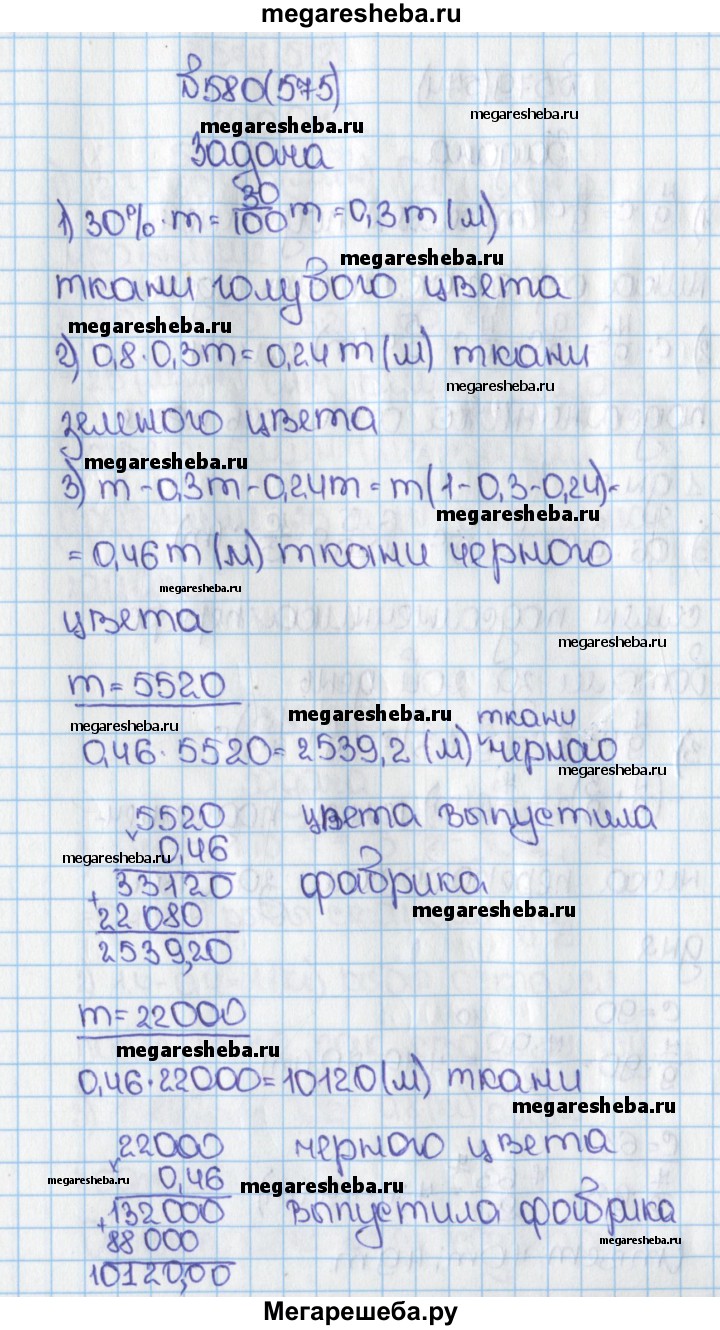 megaresheba.ru
№580(575)
megaresheba.ru
megaresheba.ru
Задача
1) 30%·m = 30/100 m = 0,3m (м)
megaresheba.ru
ткани голубого цвета
megaresheba.ru
2) 0,8·0,3m = 0,24m (м) ткани
megaresheba.ru
зеленого цвета
megaresheba.ru
3) m-0,3m-0,24m = m(1-0,3-0,24)=
megaresheba.ru
= 0,46m (м) ткани черного
megaresheba.ru
цвета
megaresheba.ru
m = 5520
megaresheba.ru
megaresheba.ru
ткани
0,46·5520 = 2539,2 (м) черного
megaresheba.ru
5520 цвета выпустила
× 0,46
megaresheba.ru
+ 33120 фабрика
megaresheba.ru
22 080
2539,20
m = 22000
megaresheba.ru
0,46·22000 = 10120 (м) ткани
megaresheba.ru
22000 черного цвета
× 0,46
megaresheba.ru
megaresheba.ru
+ 132000 выпустила фабрика
megaresheba.ru
88 000
10120,00
Мегарешеба.ру